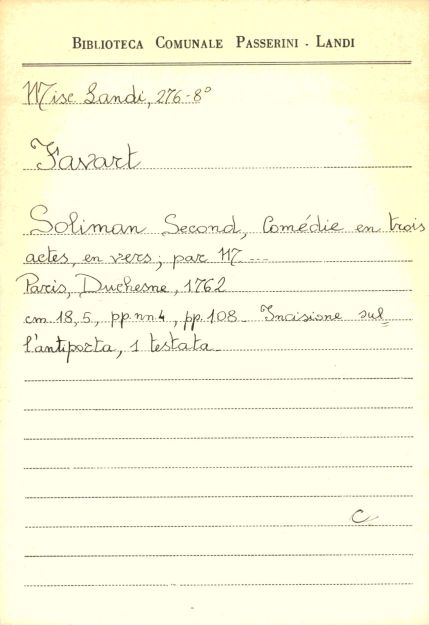 BIBLIOTECA COMUNALE PASSERINI - LANDI
Misc Landi, 276-8°
Favart
Soliman Second, Comédie en trois
actes, en vers; par M. ---
Paris, Duchesne, 1762
cm 18,5, pp.nn4, pp.108. Incisione sul=
l'antiporta, 1 testata.
C